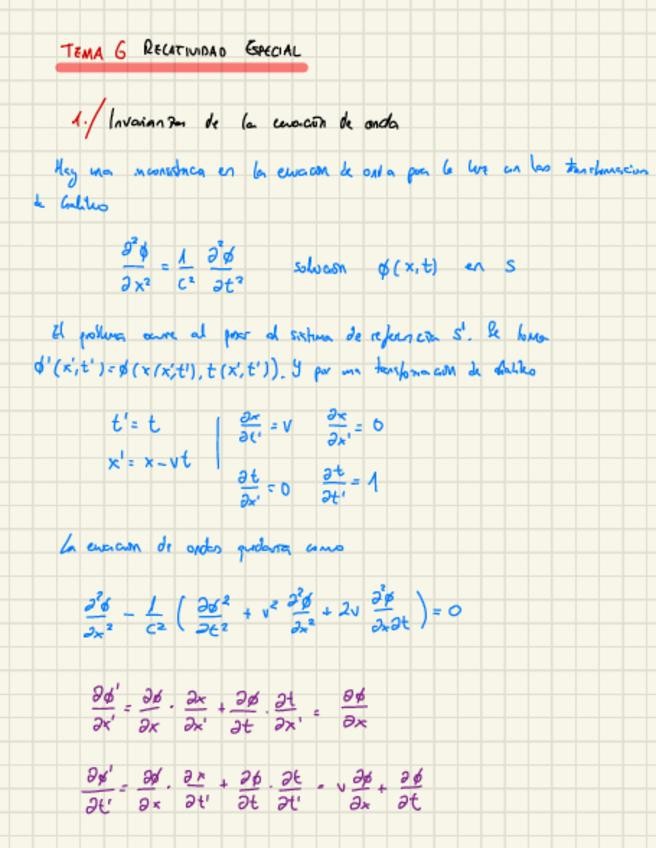 TEMA 6 RELATIVIDAD ESPECIAL
1./ Invarianza de la ecuación de onda
Hay una inconsistencia en la ecuación de onda para la luz con las transformaciones
de Galileo
∂²φ/∂x² = 1/c² ∂²φ/∂t² solución φ(x,t) en S
El problema ocurre al pasar al sistema de referencia S'. Se toma
φ'(x',t') = φ(x(x',t'), t(x',t')). Y por una transformación de Galileo
t' = t | ∂x/∂t' = v ∂x/∂x' = 0
x' = x-vt | ∂t/∂x' = 0 ∂t/∂t' = 1
La ecuación de ondas quedaría como
∂²φ/∂x² - 1/c² ( ∂φ²/∂t² + v² ∂²φ/∂x² + 2v ∂²φ/∂x∂t ) = 0
∂φ'/∂x' = ∂φ/∂x · ∂x/∂x' + ∂φ/∂t · ∂t/∂x' = ∂φ/∂x
∂φ'/∂t' = ∂φ/∂x · ∂x/∂t' + ∂φ/∂t · ∂t/∂t' = v ∂φ/∂x + ∂φ/∂t